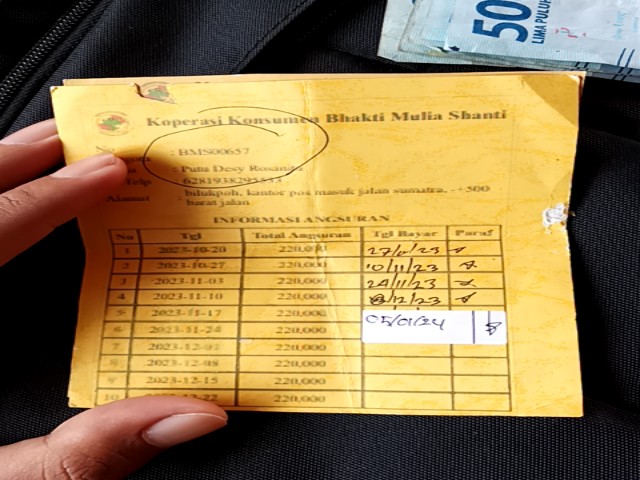 50
LIMA PULUH
Koperasi Konsumen Bhakti Mulia Shanti
No : BMS00657
: Putu Desy Rosanda
Telp
Alamat : bilukpoh, kantor pos masuk jalan sumatra, -+500
barat jalan
INFORMASI ANGSURAN
No Tgl Total Angsuran Tgl Bayar Paraf
1 2023-10-20 220,000
2 2023-10-27 220,000 10/11/23
3 2023-11-03 220,000 24/11/23
4 2023-11-10 220,000 /12/23
5 2023-11-17 220,000 05/01/24
6 2023-11-24 220,000
7 2023-12-01 220,000
8 2023-12-08 220,000
9 2023-12-15 220,000
10 220,000